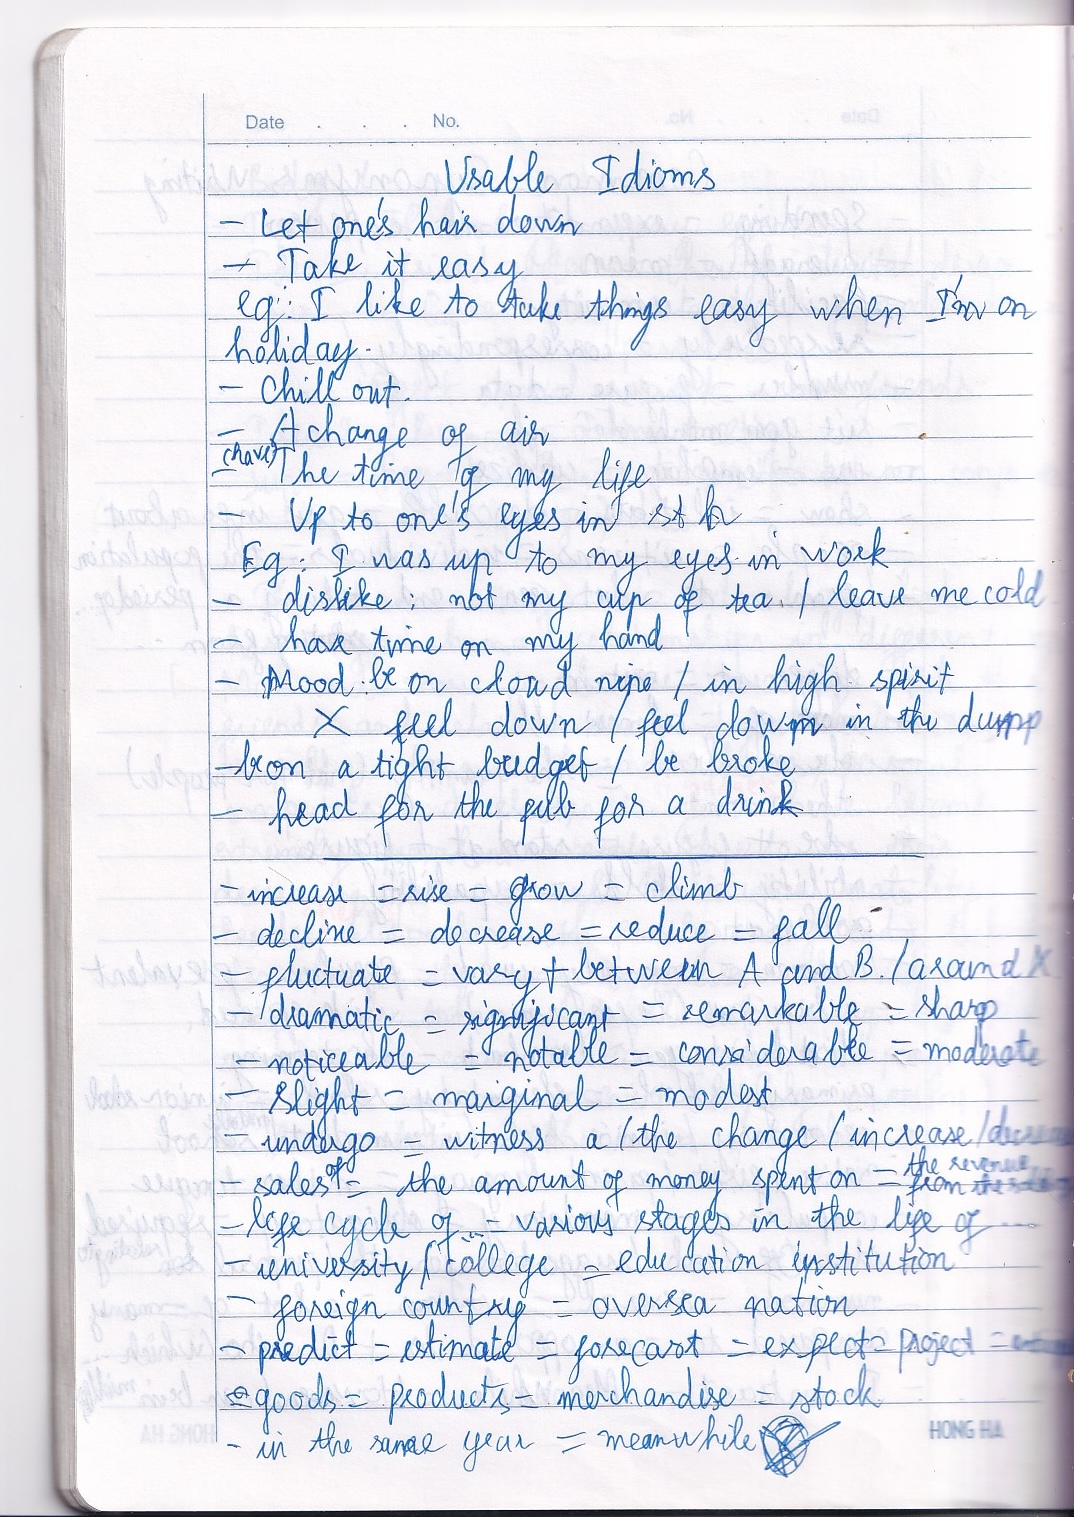 Date . . . No.
Usable Idioms
- Let one's hair down
- Take it easy
eg: I like to take things easy when I'm on
holiday.
- Chill out.
- A change of air
- (have) The time of my life
- Up to one's eyes in sth
Eg: I was up to my eyes in work
- dislike: not my cup of tea / leave me cold
- have time on my hand
- Mood: be on cloud nine / in high spirit
X feel down / feel down in the dump
- be on a tight budget / be broke
- head for the pub for a drink
- increase = rise = grow = climb
- decline = decrease = reduce = fall
- fluctuate = vary + between A and B / around X
- dramatic = significant = remarkable = sharp
- noticeable = notable = considerable = moderate
- Slight = marginal = modest
- undergo = witness a / the change / increase / decrease
- sales of = the amount of money spent on = the revenue from the
- life cycle of ... = various stages in the life of ...
- university / college = education institution
- foreign country = oversea nation
- predict = estimate = forecast = expect = project =
- goods = products = merchandise = stock
- in the same year = meanwhile
HONG HA